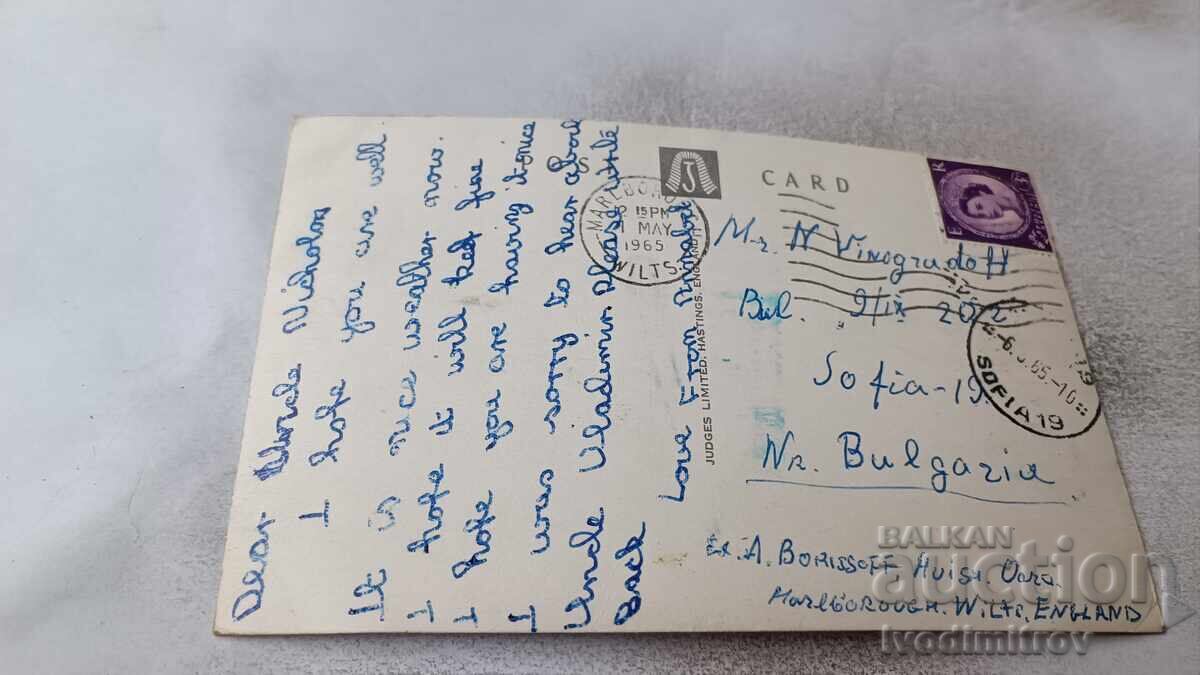 Dear Uncle Nicholas
I hope you are well
It is nice weather now.
I hope it will keep fine
I hope you are having it nice
I was sorry to hear about
Uncle Vladimir Please write
Back
Love From
CARD
JUDGES LIMITED, HASTINGS, ENGLAND
MARLBORO
15 PM
MAY
1965
WILTS.
E R
Mr N Vinogradoff
Bul. 9/IX
Sofia-19
Nr. Bulgaria
SOFIA 19
Ex. A. BORISSOFF
MarlBOROUGH. WILTS, ENGLAND
BALKAN
auction
Ivodimitrov